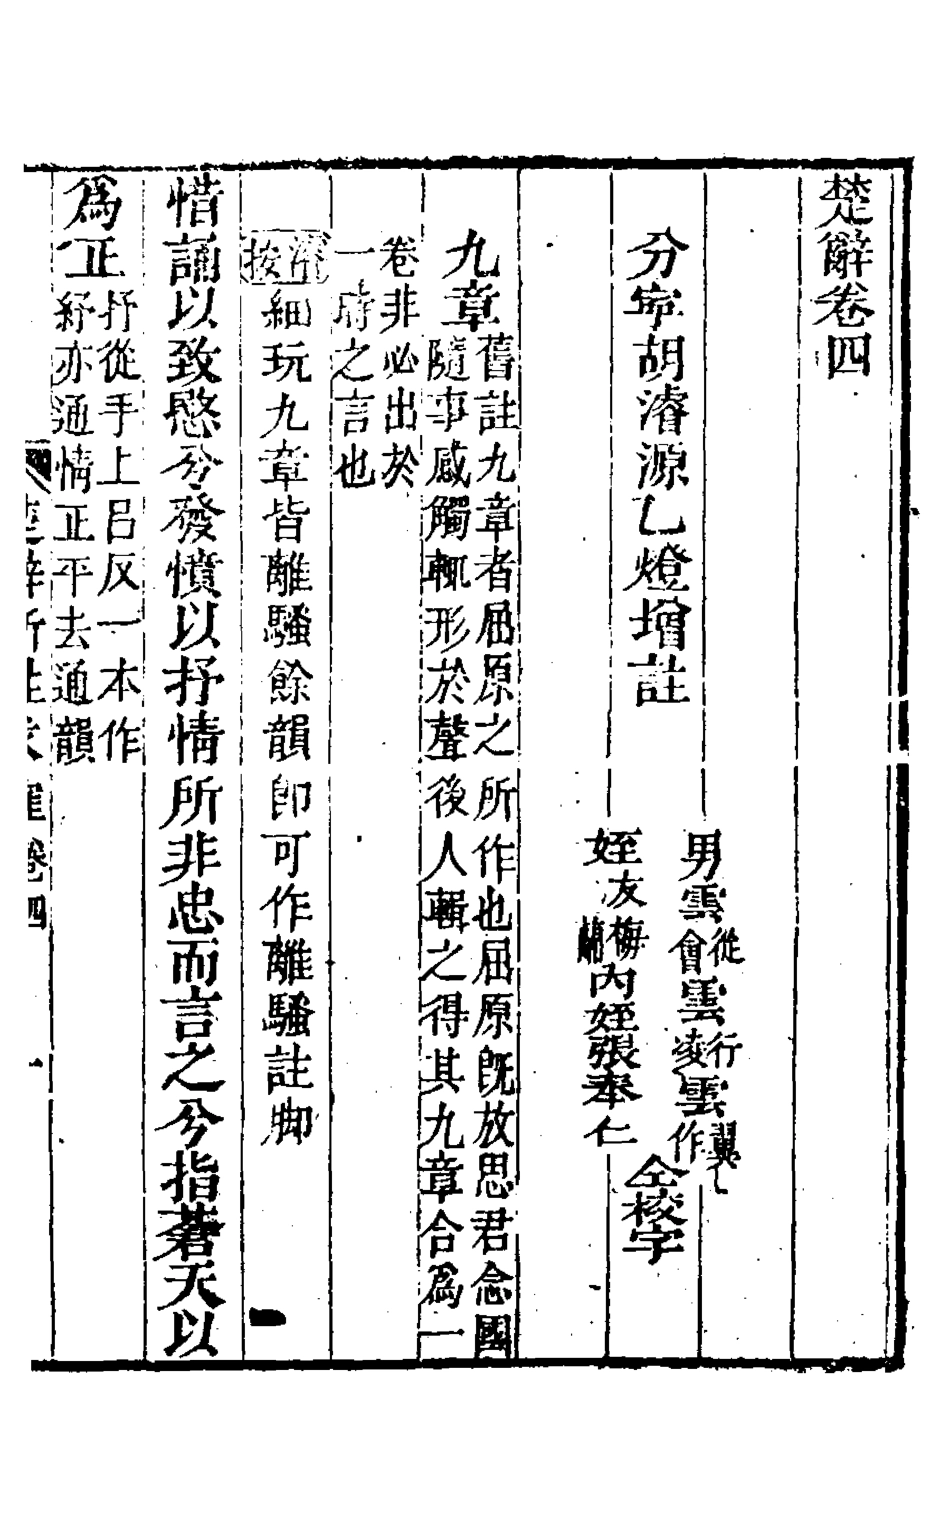 楚辭卷四
分寧胡濬源乙燈增註
男雲從會雲行凌雲翼作
仝校字
姪友梅蘭內姪張奉仁
九章舊註九章者屈原之所作也屈原旣放思君念國
隨事感觸輒形於聲後人輯之得其九章合爲一
卷非必出於
一時之言也
按細玩九章皆離騷餘韻卽可作離騷註脚
惜誦以致愍兮發憤以抒情所非忠而言之兮指蒼天以
爲正抒從手上呂反一本作
紓亦通情正平去通韻
卷四
一